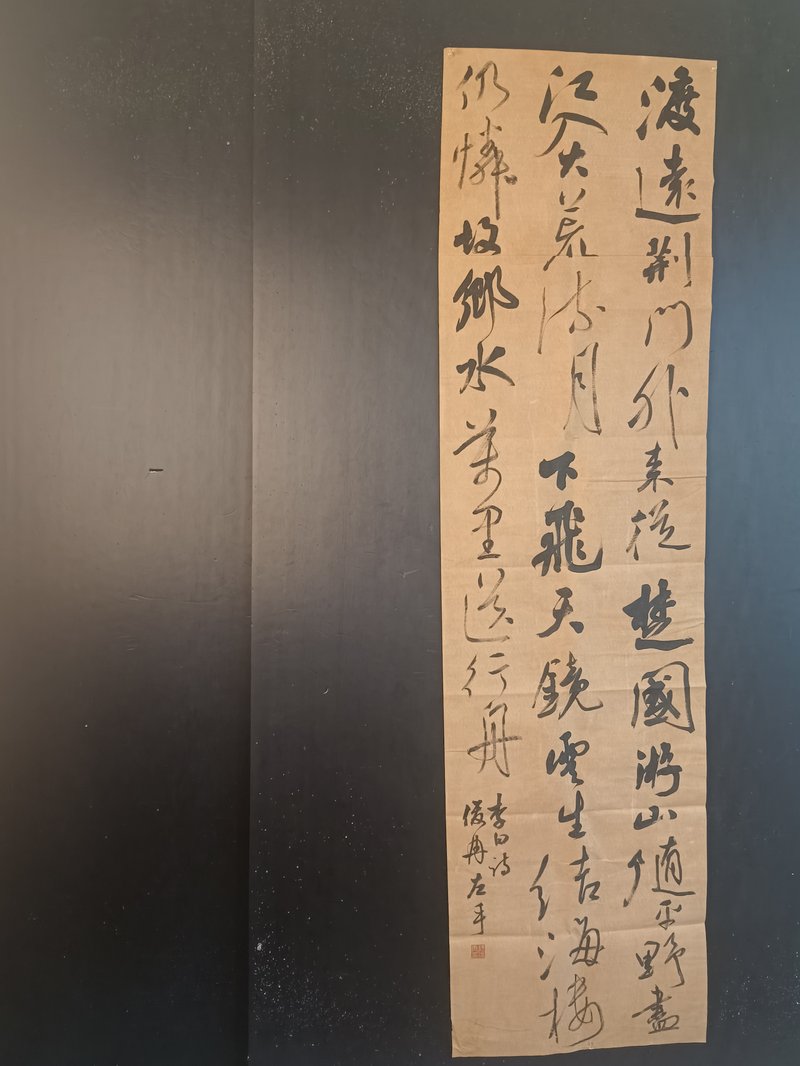 渡遠荆門外来從楚國游山随平野盡
江入大荒流月下飛天鏡雲生结海樓
仍憐故鄉水萬里送行舟
李白诗
俊冉左手